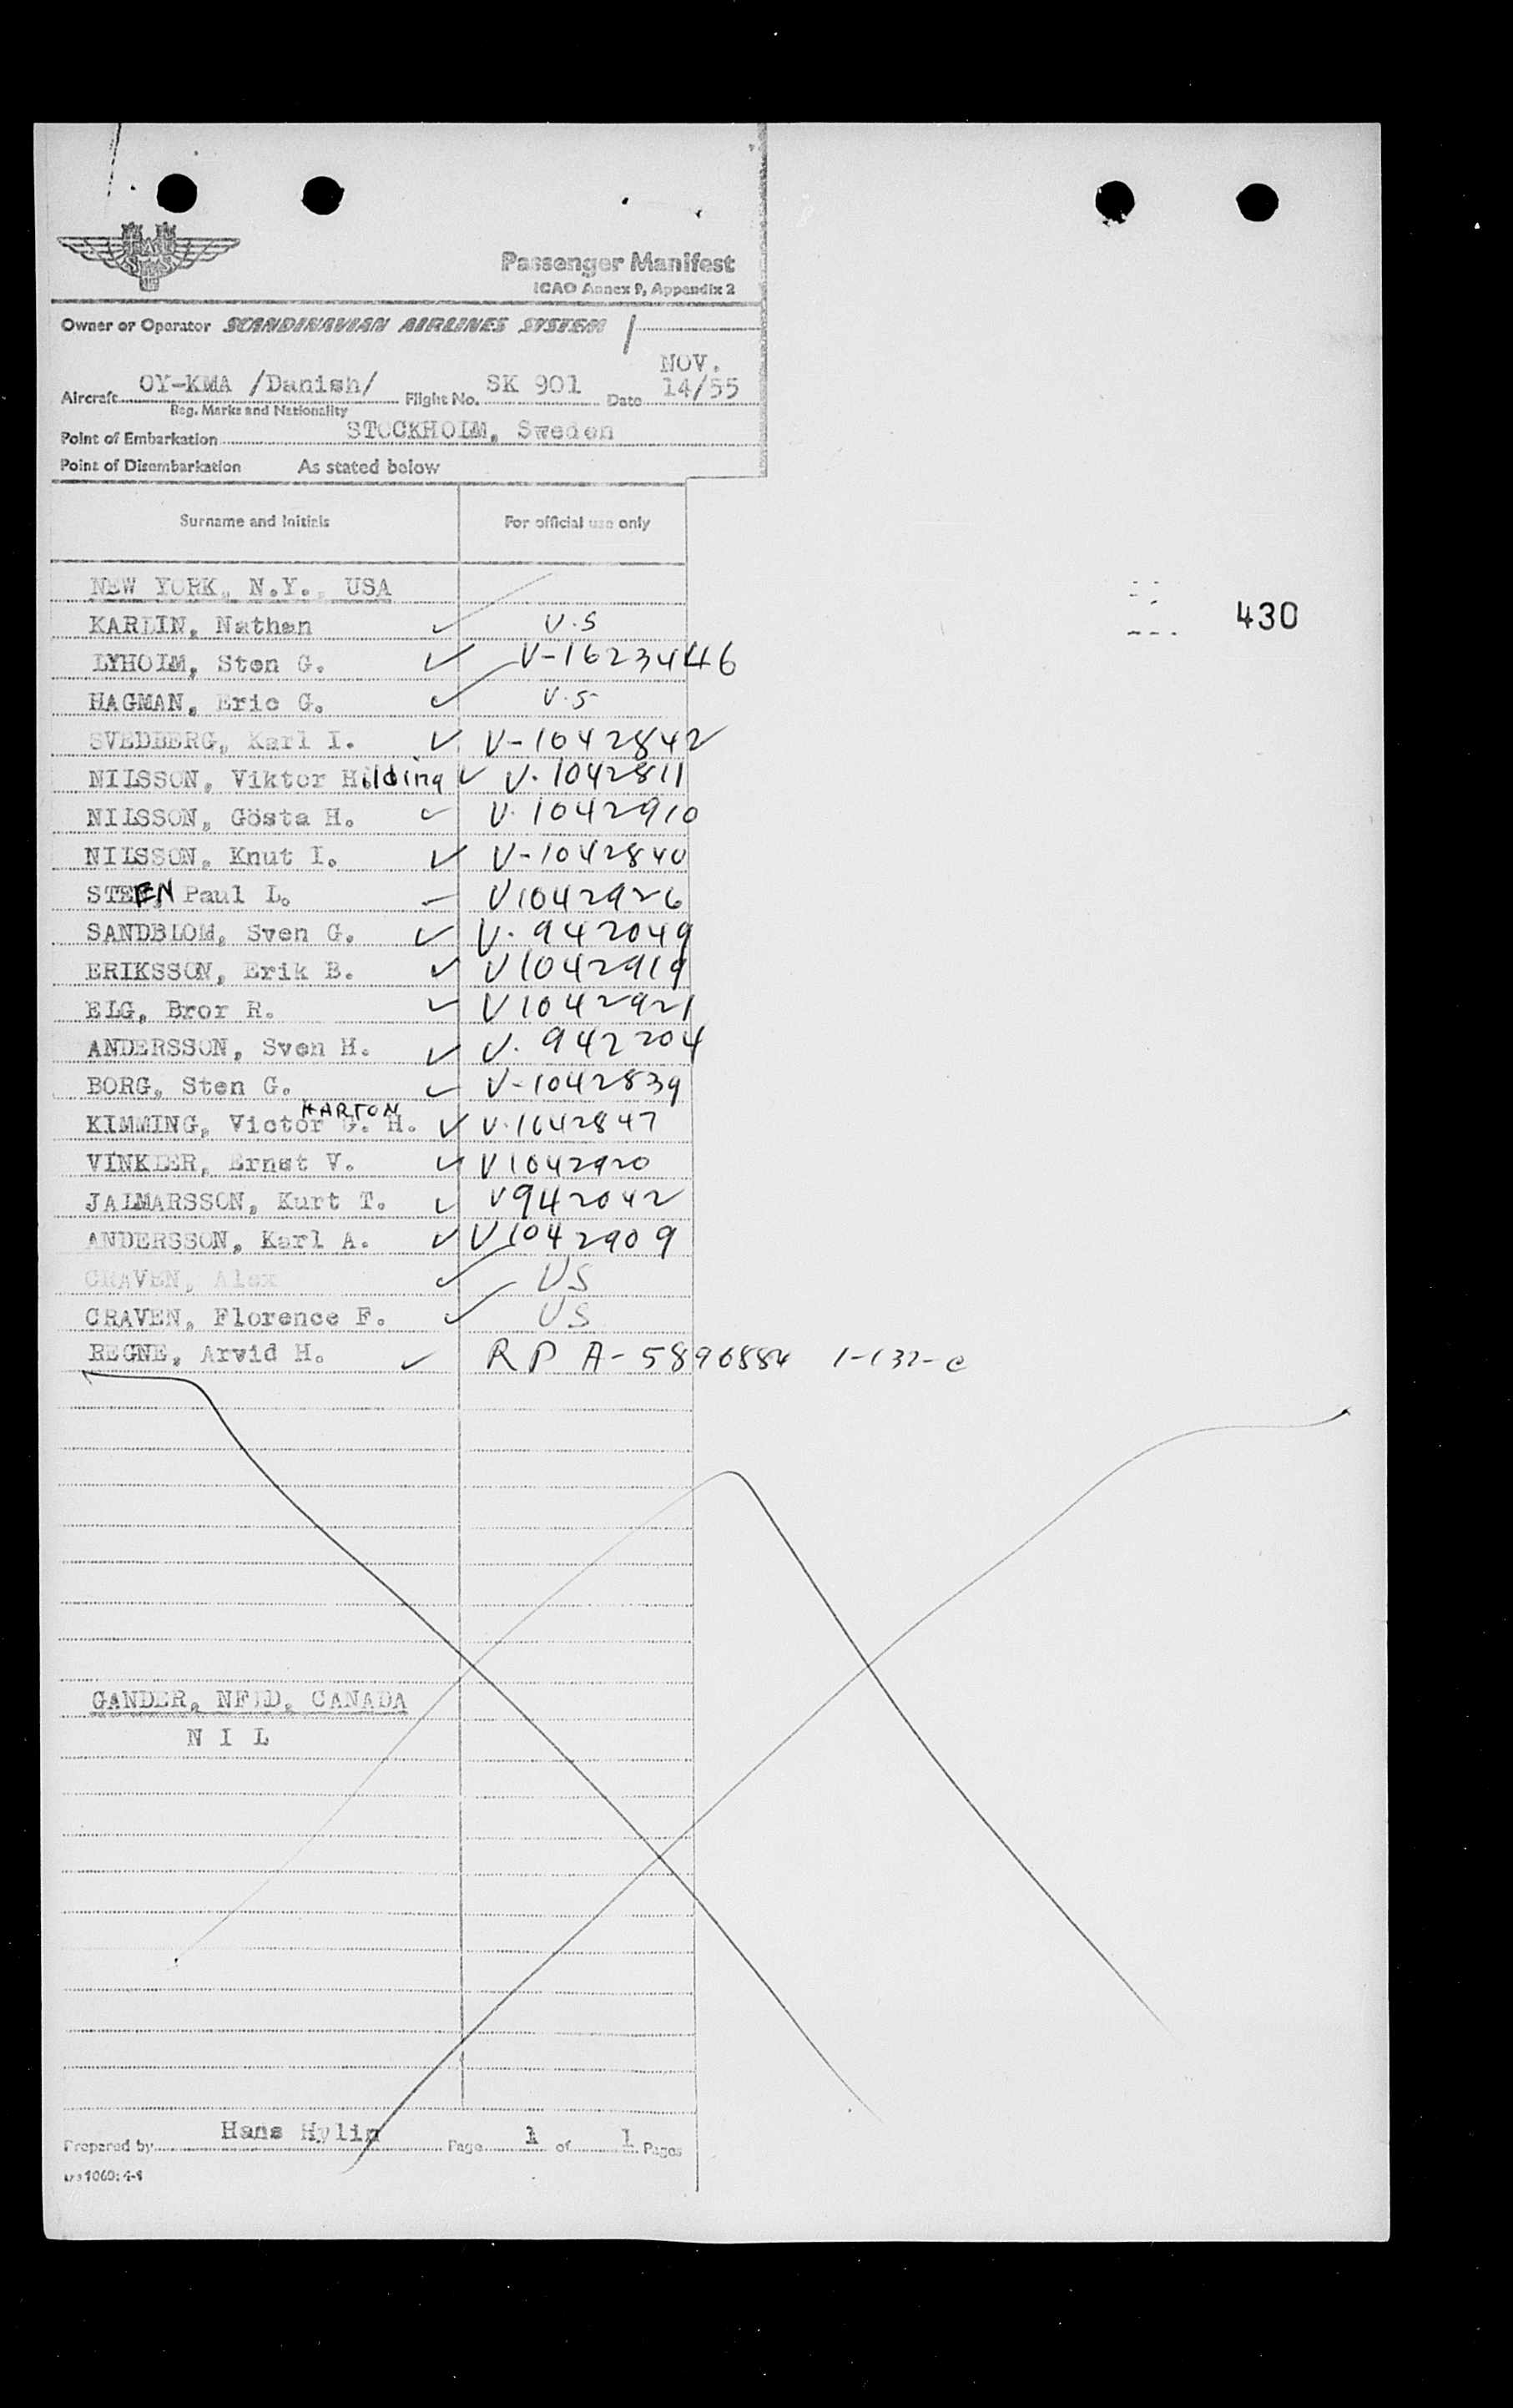 Passenger Manifest
ICAO Annex 9, Appendix 2
Owner or Operator SCANDINAVIAN AIRLINES SYSTEM
NOV.
Aircraft OY-KMA /Danish/ Flight No. SK 901 Date 14/55
Reg. Marks and Nationality
Point of Embarkation STOCKHOLM, Sweden
Point of Disembarkation As stated below
Surname and Initials For official use only
NEW YORK, N.Y., USA
430
KARLIN, Nathan ✓ U.S
LYHOLM, Sten G. ✓ V-1623446
HAGMAN, Eric G. ✓ U.S
SVEDBERG, Karl I. ✓ V-1042842
NILSSON, Viktor Hilding ✓ V.1042811
NILSSON, Gösta H. ✓ V.1042910
NILSSON, Knut I. ✓ V-1042840
STEEN Paul L. V1042926
SANDBLOM, Sven G. ✓ V.942049
ERIKSSON, Erik B. ✓ V1042919
ELG, Bror R. ✓ V1042921
ANDERSSON, Sven H. ✓ V.942204
BORG, Sten G. ✓ V-1042839
HARTON
KIMMING, Victor G. H. ✓ V.1042847
VINKLER, Ernst V. ✓ V1042920
JALMARSSON, Kurt T. ✓ V942042
ANDERSSON, Karl A. ✓ V1042909
CRAVEN, Alex ✓ US
CRAVEN, Florence F. ✓ US
REGNE, Arvid H. ✓ R P A-5890884 1-132-C
GANDER, NFLD, CANADA
N I L
Prepared by Hans Hylin Page 1 of 1 Pages
1060:4-1